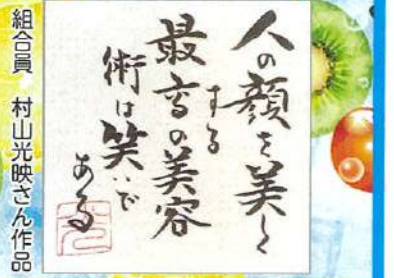 人の顔を美しく
する
最高の美容
術は笑いで
ある
組合員 村山光映さん作品